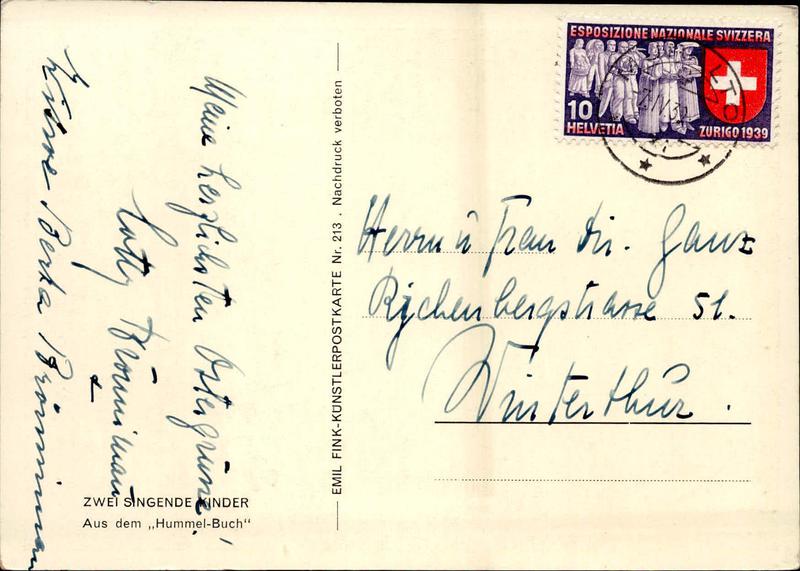 ESPOSIZIONE NAZIONALE SVIZZERA
10
HELVETIA
ZURIGO 1939
Meine herzlichsten Ostergrüsse!
Lotty Brönnimann
Berta Brönnimann
ZWEI SINGENDE KINDER
Aus dem „Hummel-Buch"
EMIL FINK-KÜNSTLERPOSTKARTE Nr. 213 . Nachdruck verboten
Herrn u Frau Dir. Ganz
Rychenbergstrasse 51.
Winterthur.